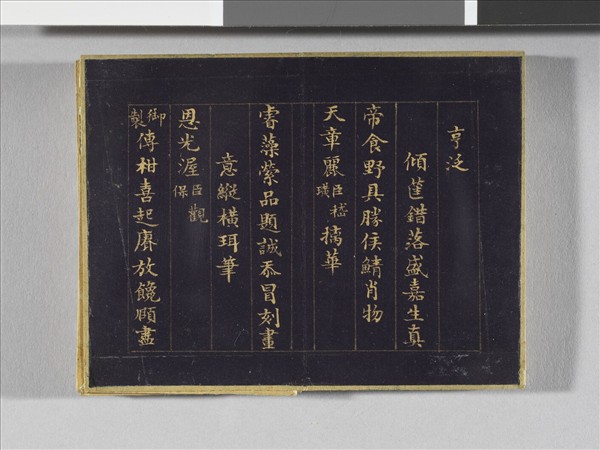 亨泛
傾筐錯落盛嘉生真
帝食野具勝侯鯖肖物
天章麗臣嵇璜摛華
睿藻縈品題誠忝冒刻畫
意縱橫珥筆
恩光渥臣觀保
御製傳柑喜起賡放饞頤盡